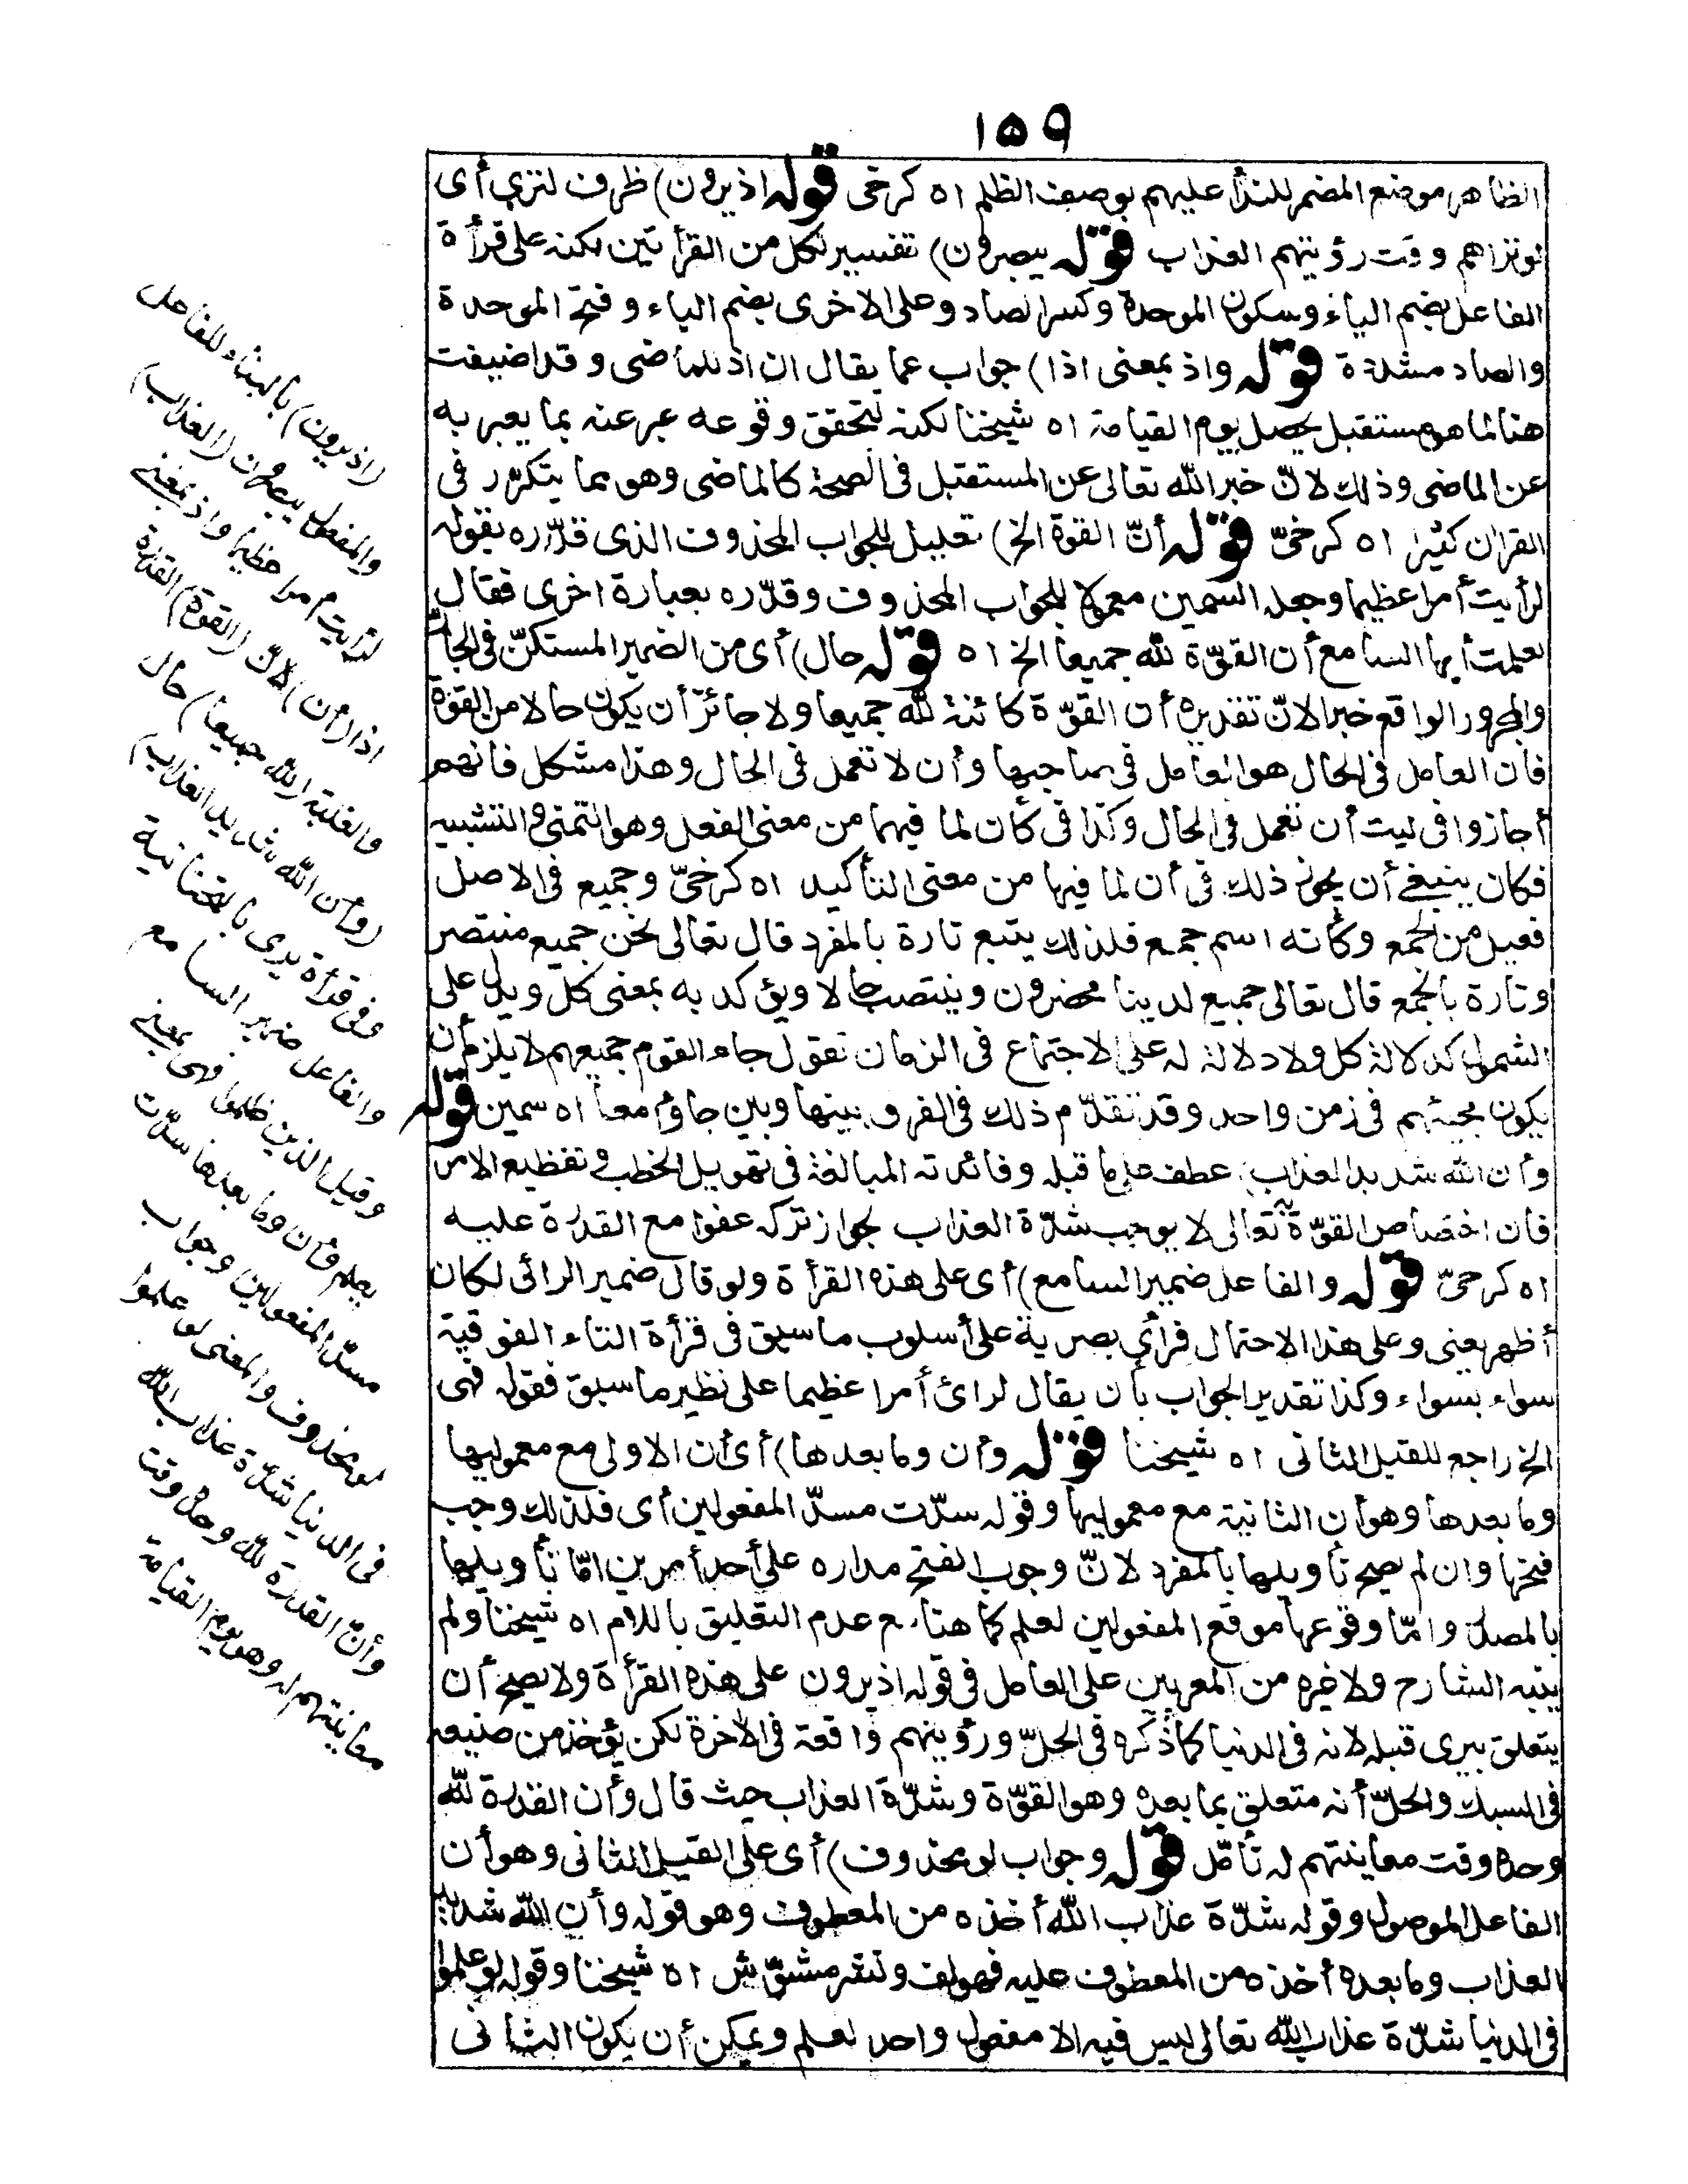 ١٥٩
الظاهر موضع المضمر للندأ عليهم بوصف الظلم اه كرخى قوله اذيرون) ظرف لترى أى
لوتراهم وقت رؤيتهم العذاب قوله يبصرون) تفسير لكل من القرأتين لكنه على قرأة
الفاعل بضم الياء وسكون الموحدة وكسر الصاد وعلى الاخرى بضم الياء وفتح الموحدة
والصاد مشددة قوله واذ بمعنى اذا) جواب عما يقال ان اذ للماضى وقد اضيفت
هنا لما هو مستقبل يحصل يوم القيامة اه شيخنا لكنه لتحقق وقوعه عبر عنه بما يعبر به
عن الماضى وذلك لانّ خبر الله تعالى عن المستقبل فى الصحة كالماضى وهو مما يتكرّر فى
القران كثيرا اه كرخىّ قوله أنّ القوة الخ) تعليل للجواب المحذوف الذى قدّره بقوله
لرأيت أمرا عظيما وجعله السمين معمولا للجواب المحذوف وقدّره بعبارة اخرى فقال
لعلمت أيها السامع أن القوّة لله جميعا الخ اه قوله حال) أى من الضمير المستكنّ فى الجارّ
والمجرور الواقع خبرا لانّ تقديره أن القوّة كائنة لله جميعا ولا جائز أن يكون حالا من القوة
فان العامل فى الحال هو العامل فى صاحبها وأن لا تعمل فى الحال وهذا مشكل فانهم
أجازوا فى ليت أن تعمل فى الحال وكذا فى كأن لما فيهما من معنى الفعل وهو التمنى والتشبيه
فكان ينبغى أن يجوز ذلك فى أن لما فيها من معنى التأكيد اه كرخىّ وجميع فى الاصل
فعيل من الجمع وكأنه اسم جمع فلذلك يتبع تارة بالمفرد قال تعالى نحن جميع منتصر
وتارة بالجمع قال تعالى جميع لدينا محضرون وينتصب حالا ويؤكد به بمعنى كل ويدل على
الشمول كدلالة كل ولا دلالة له على الاجتماع فى الزمان تقول جاء القوم جميعهم لا يلزم أن
يكون مجيئهم فى زمن واحد وقد تقدّم ذلك فى الفرق بينها وبين جاؤا معا اه سمين قوله
وأن الله شديد العذاب) عطف على ما قبله وفائدته المبالغة فى تهويل الخطب وتفظيع الامر
فان اختصاص القوّة به تعالى لا يوجب شدّة العذاب لجواز تركه عفوا مع القدرة عليه
اه كرخىّ قوله والفاعل ضمير السامع) أى على هذه القرأة ولو قال ضمير الرائى لكان
أظهر يعنى وعلى هذا الاحتمال فرأى بصرية على أسلوب ما سبق فى قرأة التاء الفوقية
سواء بسواء وكذا تقدير الجواب بأن يقال لرائ أمرا عظيما على نظير ما سبق فقوله فهى
الخ راجع للقيل الثانى اه شيخنا قوله وأن وما بعدها) أى أن الاولى مع معموليها
وما بعدها وهو أن الثانية مع معموليها وقوله سدّت مسدّ المفعولين أى فلذلك وجب
فتحها وان لم يصح تأويلها بالمفرد لانّ وجوب الفتح مداره على أحد أمرين امّا تأويلها
بالمصدر وامّا وقوعها موقع المفعولين لعلم كما هنا مع عدم التعليق باللام اه شيخنا ولم
ينبه الشارح ولا غيره من المعربين على العامل فى قوله اذيرون على هذه القرأة ولا يصح أن
يتعلق بيرى قبله لانه فى الدنيا كما ذكره فى الحلّ ورؤيتهم واقعة فى الآخرة لكن يؤخذ من صنيعه
فى السبك والحلّ أنه متعلق بما بعده وهو القوّة وشدّة العذاب حيث قال وأن القدرة لله
وحده وقت معاينتهم له تأمّل قوله وجواب لو محذوف) أى على القيل الثانى وهو أن
الفاعل الموصول وقوله شدّة عذاب الله أخذه من المعطوف وهو قوله وأن الله شديد
العذاب وما بعده أخذه من المعطوف عليه فهو لف ونشر مشوّش اه شيخنا وقوله لو علموا
فى الدنيا شدّة عذاب الله تعالى ليس فيه الا مفعول واحد لعلم ويمكن أن يكون الثانى
(اذيرون) بالبناء للفاعل
والمفعول يبصرون (العذاب)
لرأيت أمرا عظيما واذ بمعنى
اذا (أن) لانّ (القوة) القدرة
والغلبة (لله جميعا) حال
(وأن الله شديد العذاب)
وفى قرأة يرى بالتحتانية
والفاعل ضمير السامع
وقيل الذين ظلموا فهى بمعنى
يعلم وأن وما بعدها سدّت
مسدّ المفعولين وجواب
لو محذوف والمعنى لو علموا
فى الدنيا شدّة عذاب الله
وأنّ القدرة لله وحده وقت
معاينتهم له وهو يوم القيامة